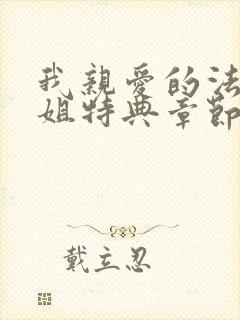 我親愛的法
姐特典章節
戴立忍